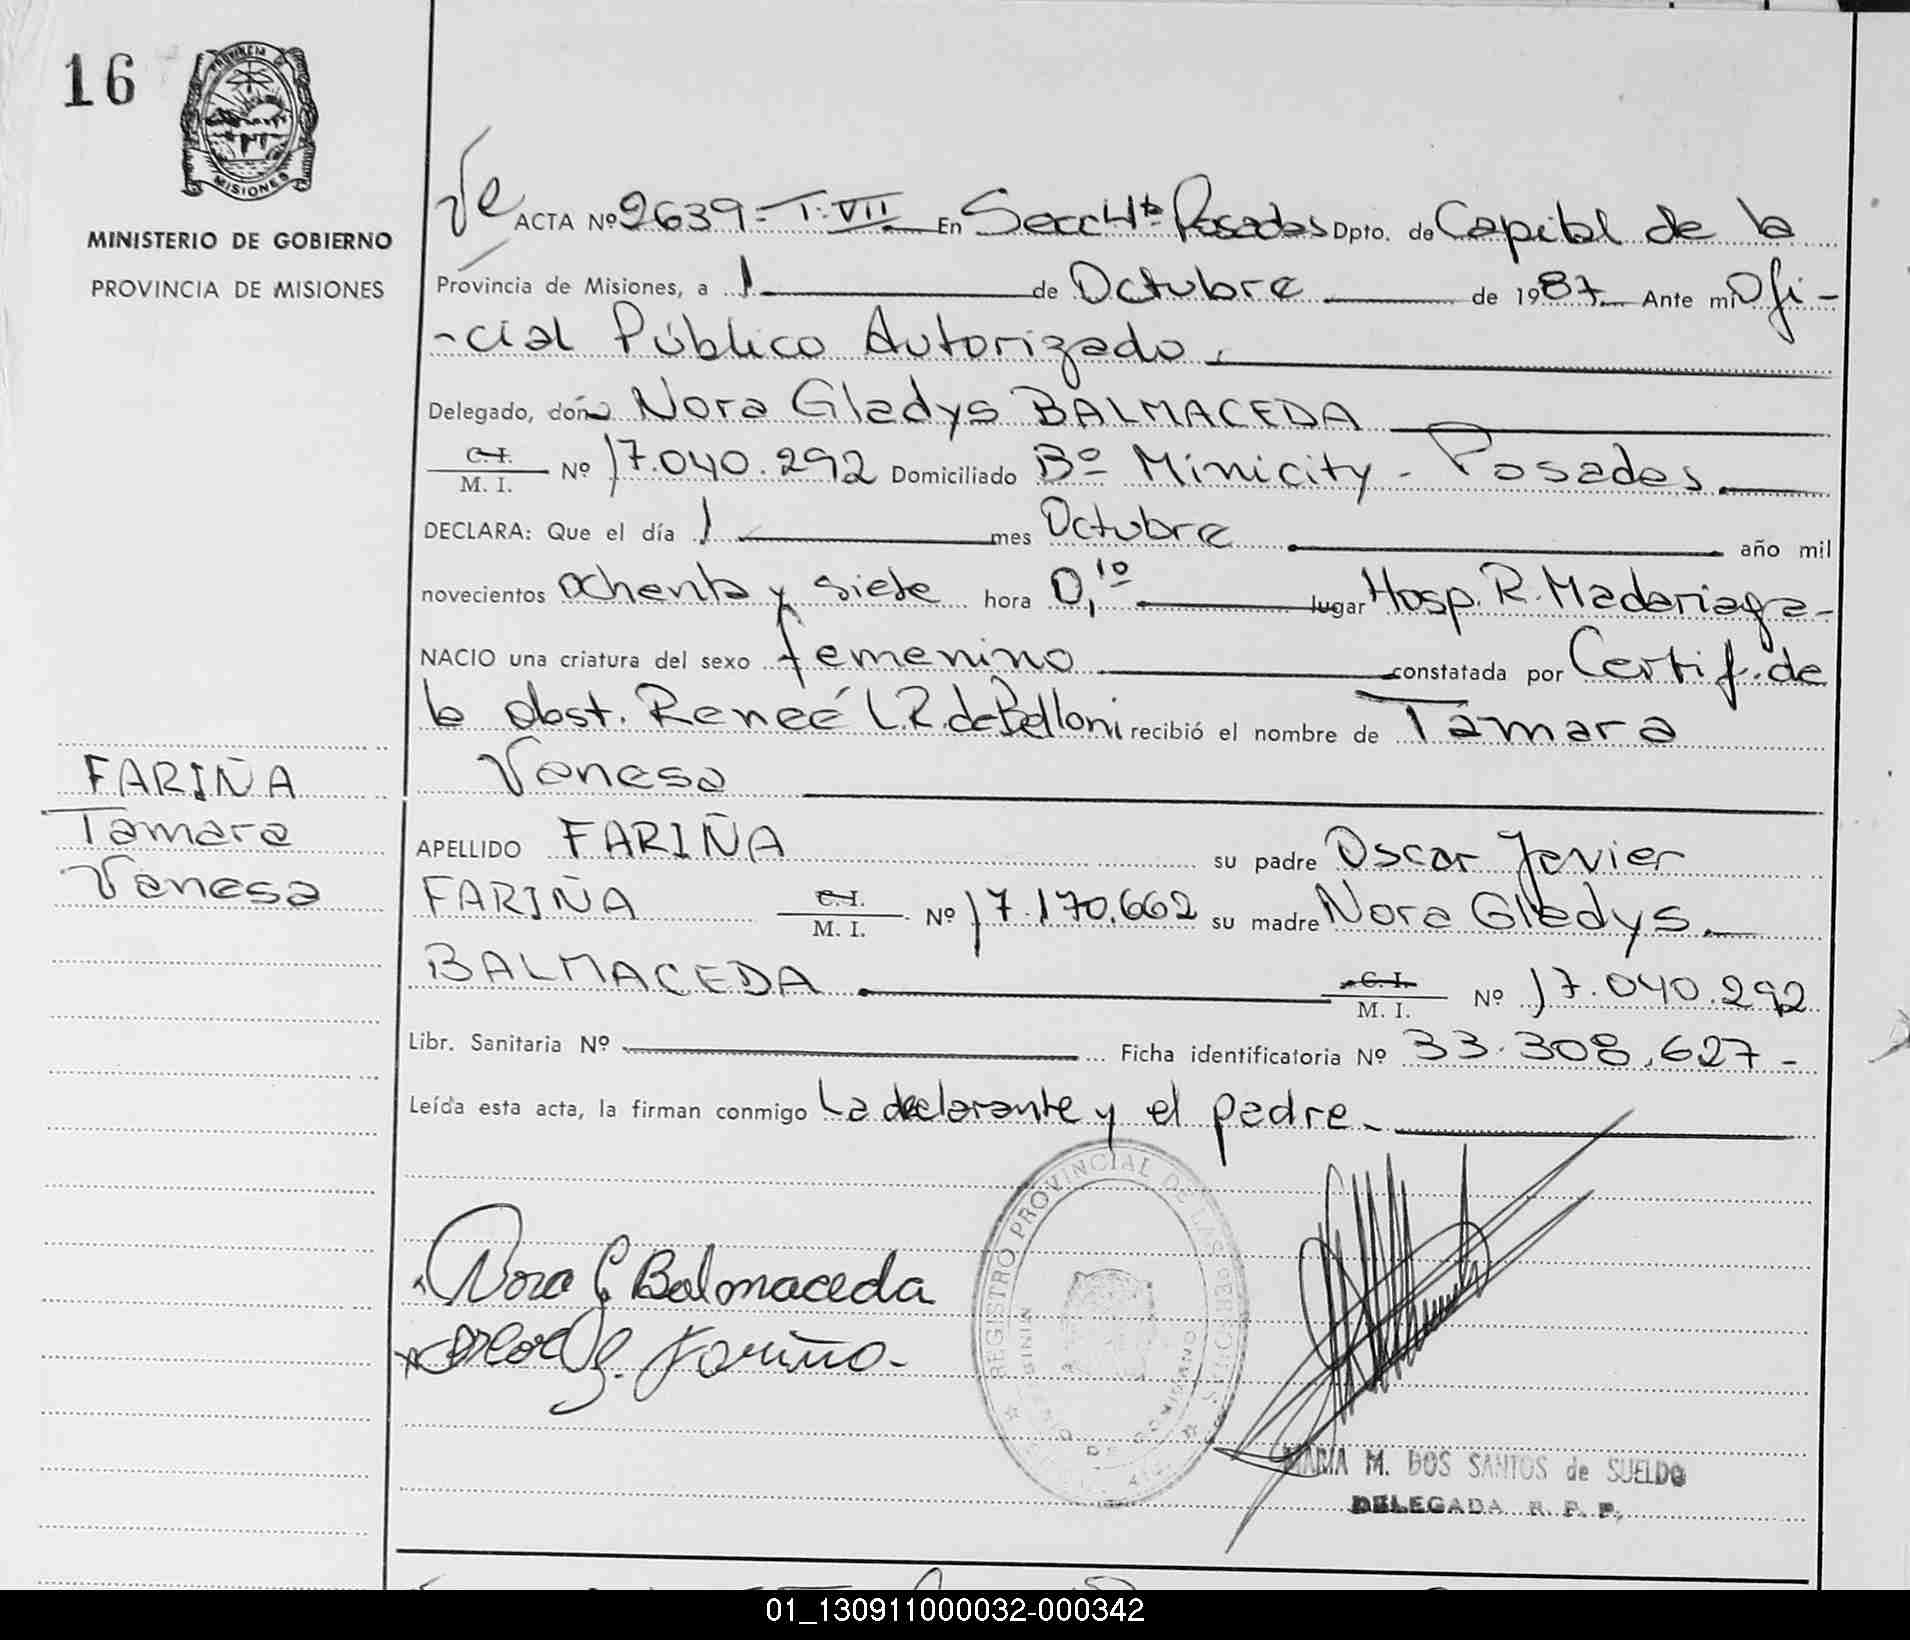 16
PROVINCIA
MISIONES
MINISTERIO DE GOBIERNO
PROVINCIA DE MISIONES
ACTA Nº 2639 - T: VII En Secc 4ta Posadas Dpto. de Capital de la
Provincia de Misiones, a 1 de Octubre de 1987 Ante mí Ofi-
-cial Público Autorizado.
Delegado, doña Nora Gladys BALMACEDA
C. I.
M. I. Nº 17.040.292 Domiciliado Bº Minicity - Posadas.
DECLARA: Que el día 1 mes Octubre año mil
novecientos ochenta y siete hora 0,10 lugar Hosp. R. Madariaga-
NACIO una criatura del sexo femenino constatada por Certif. de
la obst. Reneé L.R. de Belloni recibió el nombre de Tamara
Vanesa
FARIÑA
Tamara
Vanesa
APELLIDO FARIÑA su padre Oscar Javier
FARIÑA C. I. M. I. Nº 17.170.662 su madre Nora Gladys.
BALMACEDA C. I. M. I. Nº 17.040.292
Libr. Sanitaria Nº Ficha identificatoria Nº 33.308.627-
Leída esta acta, la firman conmigo La declarante y el padre.
Nora G Balmaceda
Fariña.
REGISTRO PROVINCIAL DE LAS PERSONAS
MARIA M. DOS SANTOS de SUELDO
DELEGADA R. P. P.
01_130911000032-000342